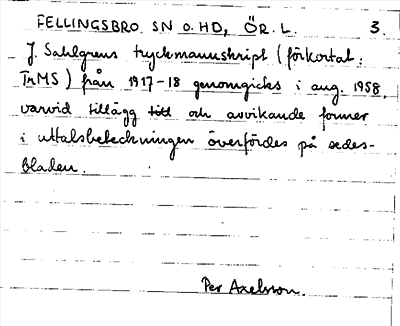 FELLINGSBRO SN O. HD, ÖR. L. 3.
J. Sahlgrens tryckmanuskript (förkortat:
TrMS) från 1917-18 genomgicks i aug. 1958,
varvid tillägg till och avvikande former
i uttalsbeteckningen överfördes på sedes-
bladen.
Per Axelsson.